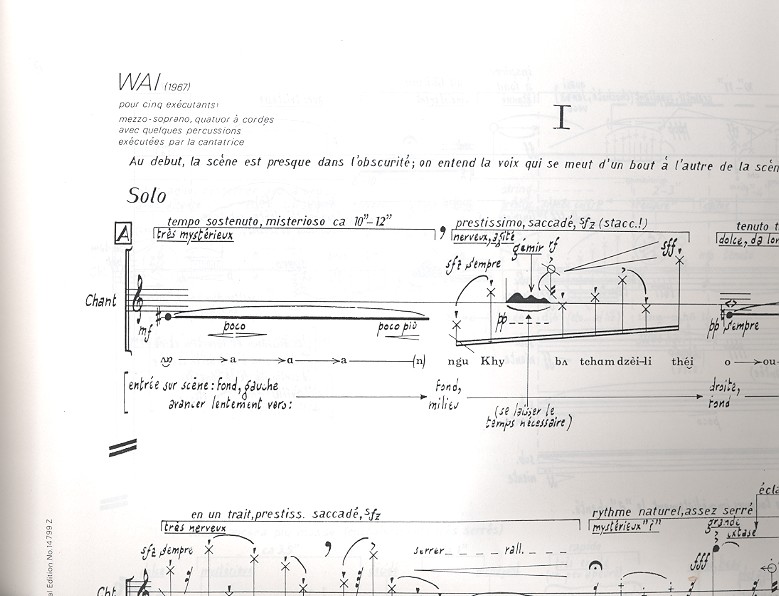 WAI (1967)
pour cinq exécutants:
mezzo-soprano, quatuor à cordes
avec quelques percussions
exécutées par la cantatrice
I
Au debut, la scène est presque dans l'obscurité; on entend la voix qui se meut d'un bout à l'autre de la scèn
Solo
A
tempo sostenuto, misterioso ca 10"–12"
très mystérieux
prestissimo, saccadé, sfz (stacc.!)
nerveux, agité
tenuto t
dolce, da lon
gémir rf
sff
sfz sempre
Chant
mf
poco
poco più
pp
pp sempre
a a a (n) ngu Khy bʌ tcham dzèi-li théi o ou
entrée sur scène: fond, gauche
avancer lentement vers:
fond,
milieu
(se laisser le
temps nécessaire)
droite,
fond
écla
en un trait, prestiss. saccadé, sfz
très nerveux
rythme naturel, assez serré
mystérieux "i"
grande
extase
sfz sempre
serrer rall.
fff
Cht
al Edition No. 14799 Z